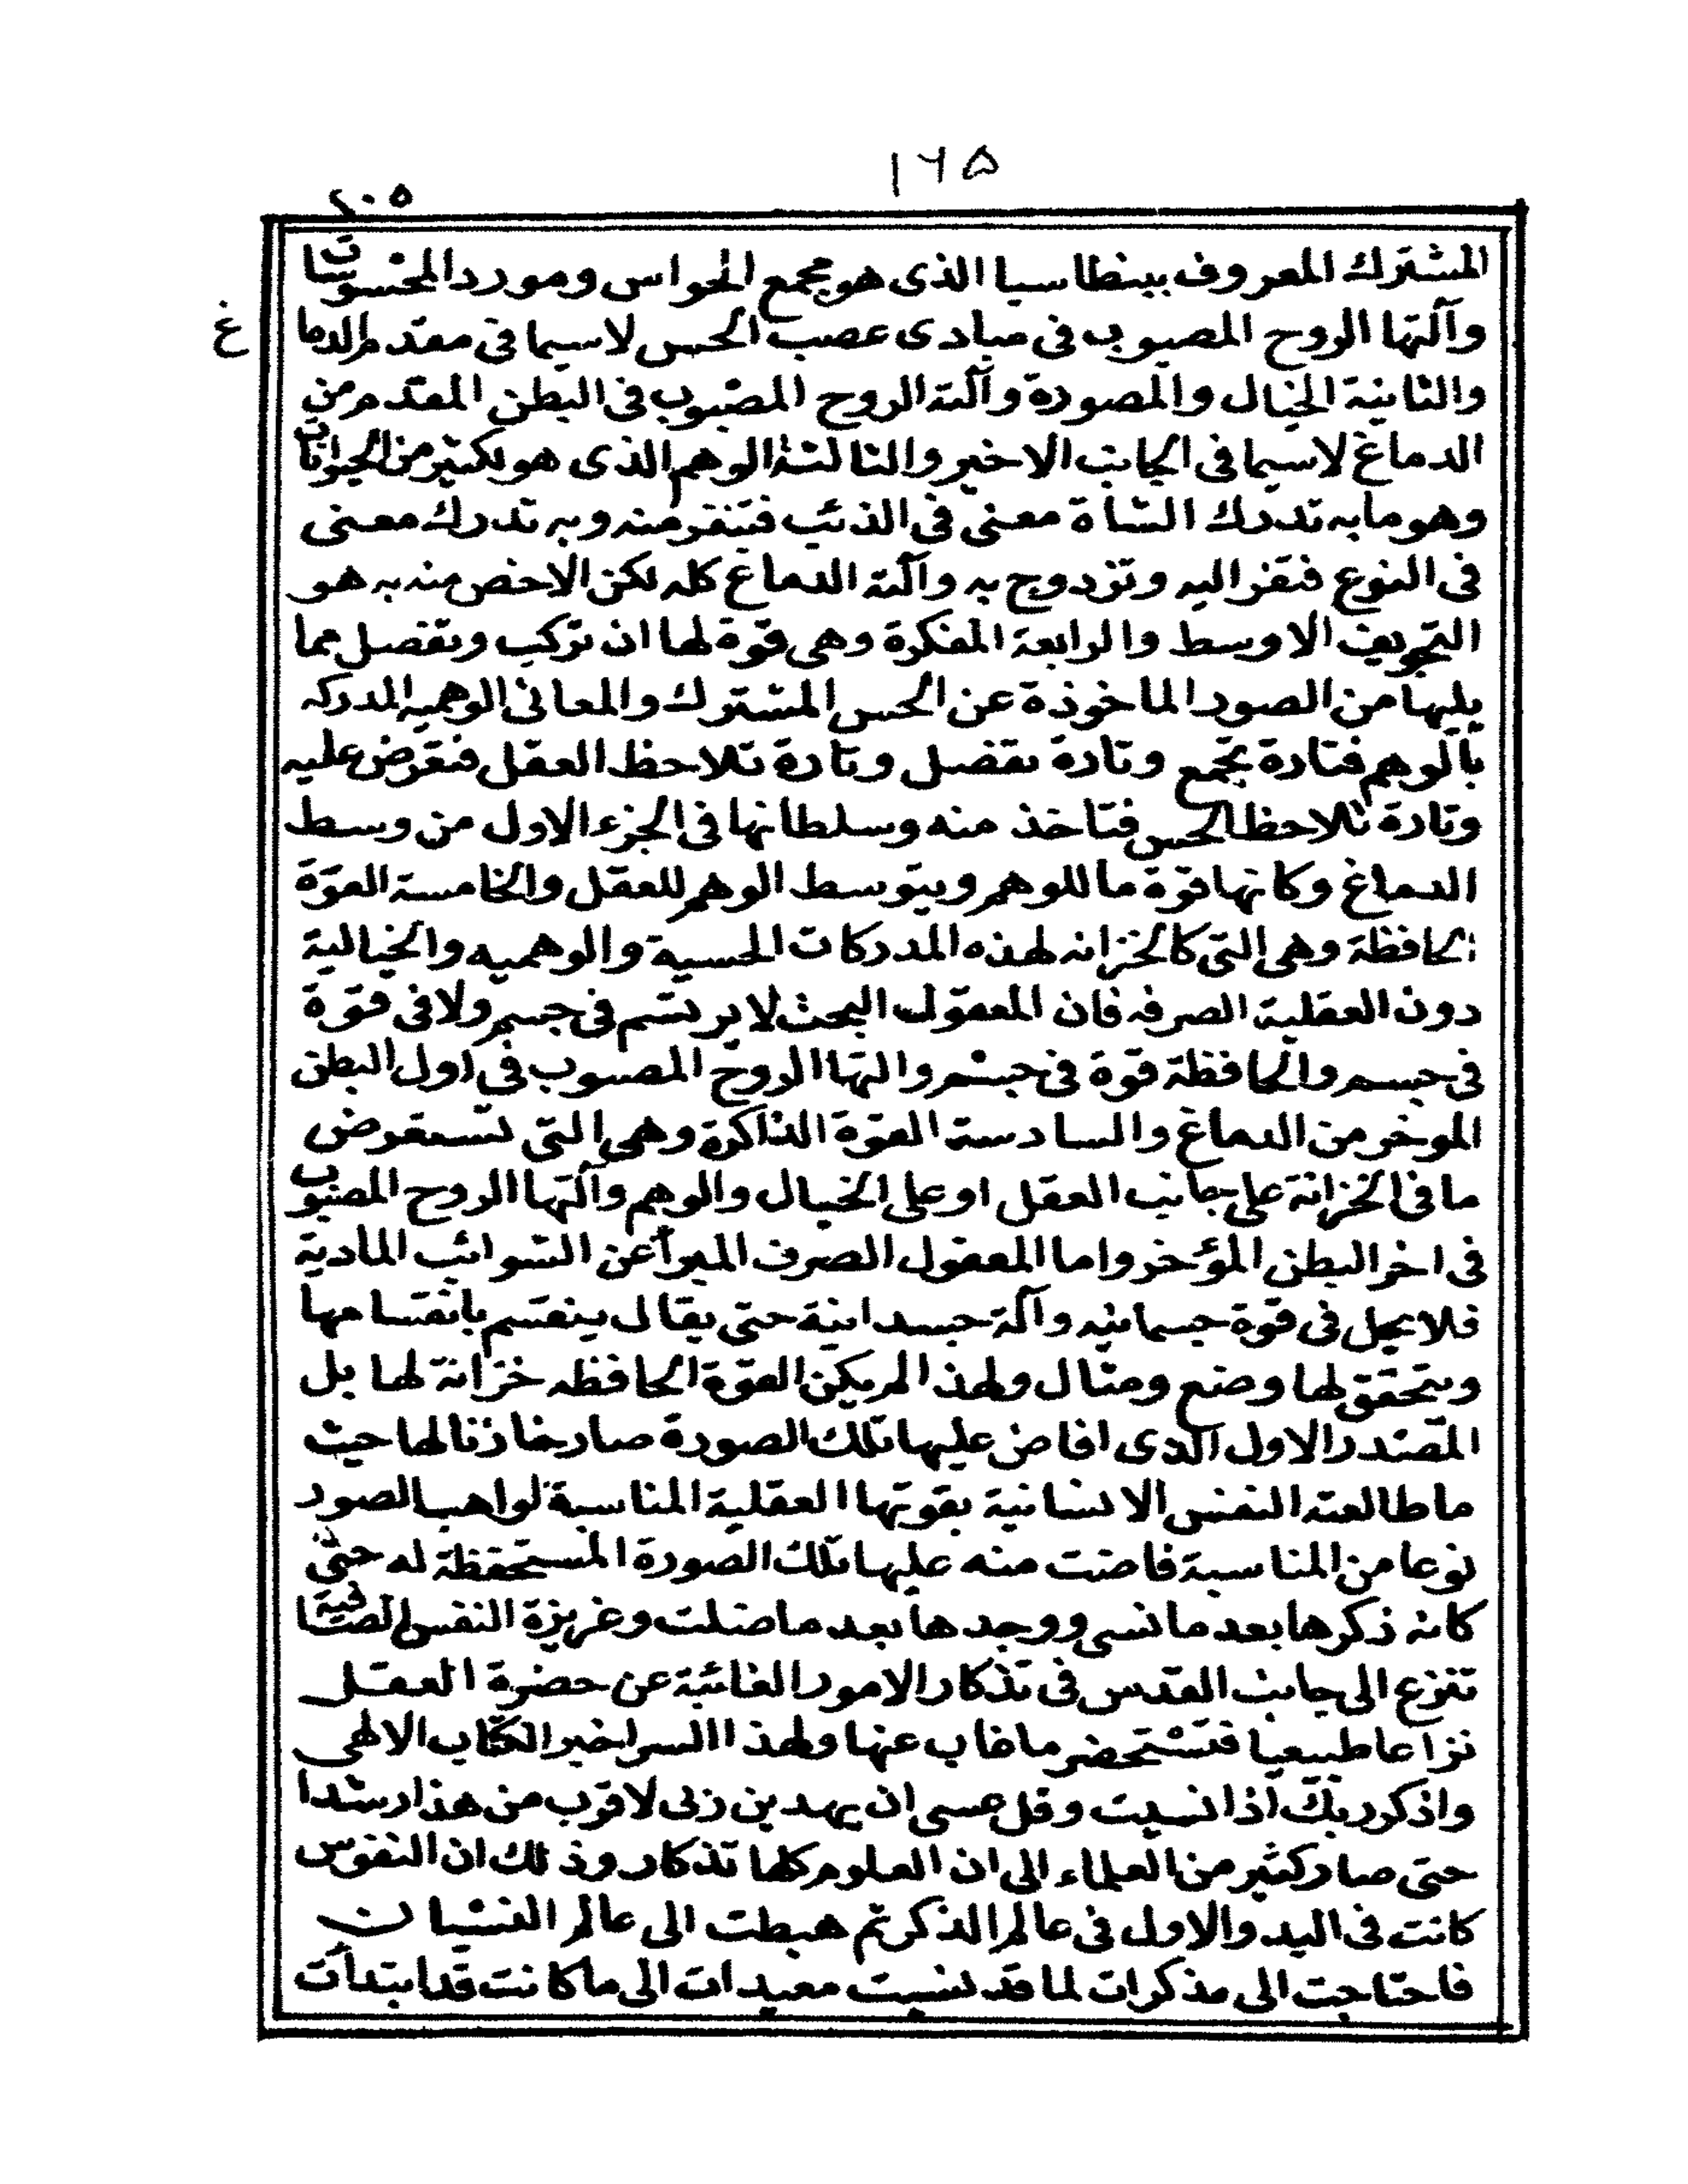 ١٦۵
٢٠۵
المشترك المعروف ببنطاسيا الذى هو مجمع الحواس ومورد المحسوسات
وآلتها الروح المصبوب فى مبادى عصب الحس لاسيما فى مقدم الدما
غ
والثانية الخيال والمصورة وآلته الروح المصبوب فى البطن المقدم من
الدماغ لاسيما فى الجانب الاخير والثالثة الوهم الذى هو لكثير من الحيوانات
وهو ما به تدرك الشاة معنى فى الذئب فتنفر منه وبه تدرك معنى
فى النوع فتقر اليه وتزدوج به وآلته الدماغ كله لكن الاخص منه به هو
التجويف الاوسط والرابعة المفكرة وهى قوة لها ان تركب وتفصل مما
يليها من الصور الماخوذة عن الحس المشترك والمعانى الوهميه المدركه
بالوهم فتارة تجمع وتارة تفصل وتارة تلاحظ العقل فتعرض عليه
وتارة تلاحظ الحس فتاخذ منه وسلطانها فى الجزء الاول من وسط
الدماغ وكانها قوة ما للوهم وبتوسط الوهم للعقل والخامسة القوة
الحافظة وهى التى كالخزانه لهذه المدركات الحسية والوهميه والخيالية
دون العقلية الصرفه فان المعقول البحث لا يرتسم فى جسم ولا فى قوة
فى جسم والحافظة قوة فى جسم والتها الروح المصبوب فى اول البطن
الموخر من الدماغ والسادسة القوة الذاكرة وهى التى تستعرض
ما فى الخزانة على جانب العقل او على الخيال والوهم وآلتها الروح المصبوب
فى اخر البطن المؤخر واما المعقول الصرف المبرأ عن الشوائب المادية
فلا يحل فى قوة جسمانيه وآلة جسدانية حتى يقال ينقسم بانقسامها
ويتحقق لها وضع ومثال ولهذا لم يكن القوة الحافظه خزانة لها بل
المصدر الاول الذى افاض عليها تلك الصورة صار خازنا لها حيث
ما طالعته النفس الانسانية بقوتها العقلية المناسبة لواهب الصور
نوعا من المناسبة فاضت منه عليها تلك الصورة المستحفظة له حتى
كانه ذكرها بعد ما نسى ووجدها بعد ما ضلت وغريزة النفس الصافية
تنزع الى جانب القدس فى تذكار الامور الغائبة عن حضرة العقل
نزاعا طبيعيا فتستحضر ما غاب عنها ولهذا السر اخبر الكتاب الالهى
واذكر ربك اذا نسيت وقل عسى ان يهدين ربى لاقرب من هذا رشدا
حتى صار كثير من العلماء الى ان العلوم كلها تذكار وذلك ان النفوس
كانت فى البدو الاول فى عالم الذكر ثم هبطت الى عالم النسيان
فاحتاجت الى مذكرات لما قد نسيت معيدات الى ما كانت قد ابتدأت